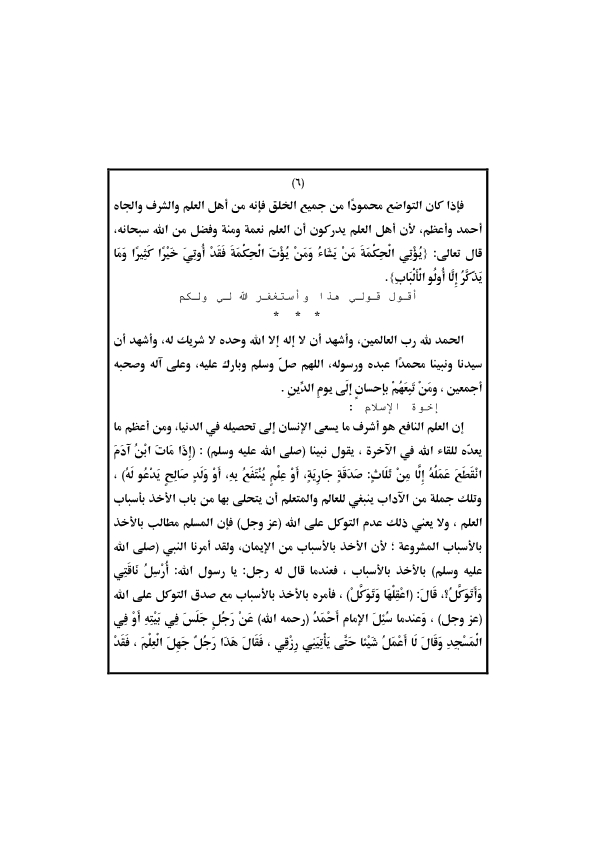 (٦)
فإذا كان التواضع محمودًا من جميع الخلق فإنه من أهل العلم والشرف والجاه
أحمد وأعظم، لأن أهل العلم يدركون أن العلم نعمة ومنة وفضل من الله سبحانه،
قال تعالى: {يُؤْتِي الْحِكْمَةَ مَنْ يَشَاءُ وَمَنْ يُؤْتَ الْحِكْمَةَ فَقَدْ أُوتِيَ خَيْرًا كَثِيرًا وَمَا
يَذَكَّرُ إِلَّا أُولُو الْأَلْبَابِ}.
أقول قولي هذا وأستغفر لله لى ولكم
* * *
الحمد لله رب العالمين، وأشهد أن لا إله إلا الله وحده لا شريك له، وأشهد أن
سيدنا ونبينا محمدًا عبده ورسوله، اللهم صلّ وسلم وبارك عليه، وعلى آله وصحبه
أجمعين ، ومَنْ تَبِعَهُمْ بإحسانٍ إلَى يومِ الدِّينِ .
إخوة الإسلام :
إن العلم النافع هو أشرف ما يسعى الإنسان إلى تحصيله في الدنيا، ومن أعظم ما
يعدّه للقاء الله في الآخرة ، يقول نبينا (صلى الله عليه وسلم) : (إِذَا مَاتَ ابْنُ آدَمَ
انْقَطَعَ عَمَلُهُ إِلَّا مِنْ ثَلَاثٍ: صَدَقَةٍ جَارِيَةٍ، أَوْ عِلْمٍ يُنْتَفَعُ بِهِ، أَوْ وَلَدٍ صَالِحٍ يَدْعُو لَهُ) ،
وتلك جملة من الآداب ينبغي للعالم والمتعلم أن يتحلى بها من باب الأخذ بأسباب
العلم ، ولا يعني ذلك عدم التوكل على الله (عز وجل) فإن المسلم مطالب بالأخذ
بالأسباب المشروعة ؛ لأن الأخذ بالأسباب من الإيمان، ولقد أمرنا النبي (صلى الله
عليه وسلم) بالأخذ بالأسباب ، فعندما قال له رجل: يا رسول الله: أُرْسِلُ نَاقَتِي
وَأَتَوَكَّلُ؟، قَالَ: (اعْقِلْهَا وَتَوَكَّلْ) ، فأمره بالأخذ بالأسباب مع صدق التوكل على الله
(عز وجل) ، وَعندما سُئِلَ الإمام أَحْمَدُ (رحمه الله) عَنْ رَجُلٍ جَلَسَ فِي بَيْتِهِ أَوْ فِي
الْمَسْجِدِ وَقَالَ لَا أَعْمَلُ شَيْئًا حَتَّى يَأْتِيَنِي رِزْقِي ، فَقَالَ هَذَا رَجُلٌ جَهِلَ الْعِلْمَ ، فَقَدْ